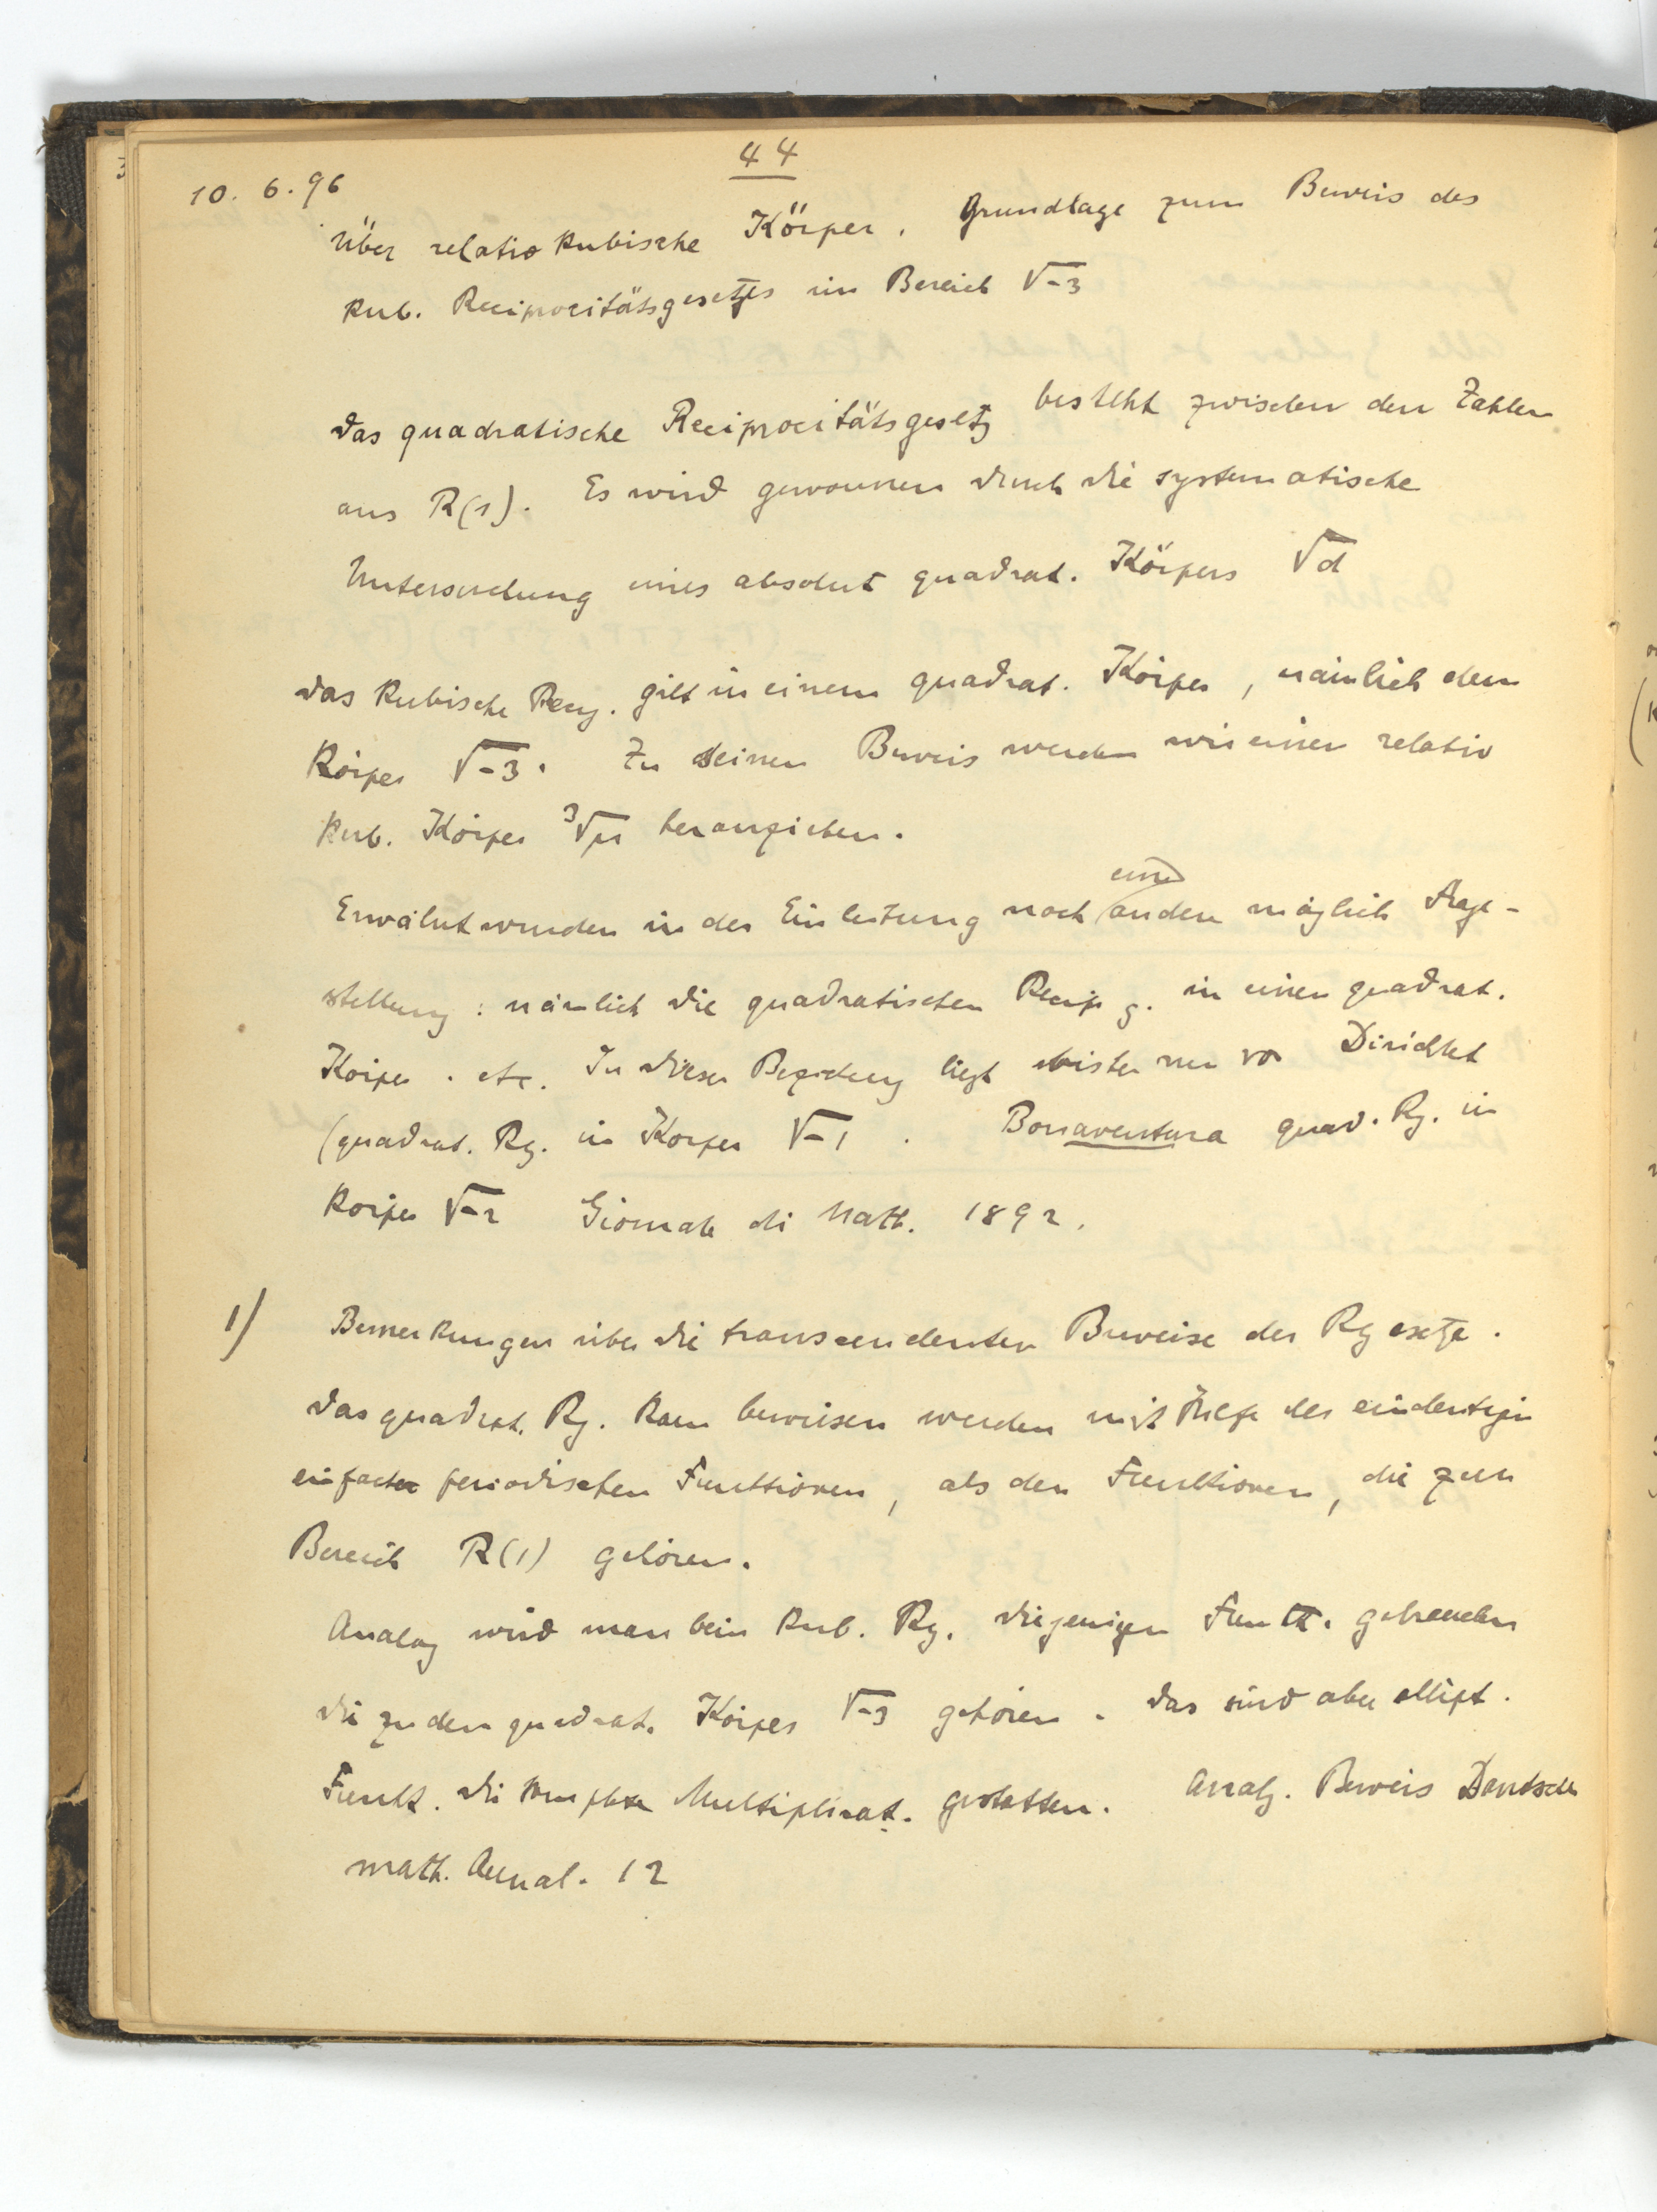 44
10. 6. 96
Über relativ kubische Körper. Grundlage zum Beweis des
kub. Reciprocitätsgesetzes im Bereich √-3
Das quadratische Reciprocitätsgesetz besteht zwischen den Zahlen
aus R(1). Es wird gewonnen durch die systematische
Untersuchung eines absolut quadrat. Körpers √d
Das kubische Rezg. gilt in einem quadrat. Körper, nämlich dem
Körper √-3. Zu seinem Beweis werden wir einen relativ
kub. Körper ³√μ heranziehen.
Erwähnt wurden in der Einleitung noch eine andere mögliche Frage-
stellung: nämlich die quadratischen Recip g. in einem quadrat.
Körper. etc. In dieser Beziehung liegt bisher nur vor Dirichlet
(quadrat. Rg. in Körper √-1. Bonaventura quad. Rg. in
Körper √-2 Giornale di Math. 1892.
1) Bemerkungen über die transcendenten Beweise der Rgesetze.
Das quadrat. Rg. kann bewiesen werden mit Hilfe der eindeutigen
einfach periodischen Functionen, als den Funktionen, die zum
Bereich R(1) gehören.
Analog wird man beim kub. Rg. diejenigen Funkt. gebrauchen
die zu dem quadrat. Körper √-3 gehören. Das sind aber ellipt.
Funkt. die komplexe Multiplicat. gestatten. Analg. Beweis Dantscher
math. Annal. 12